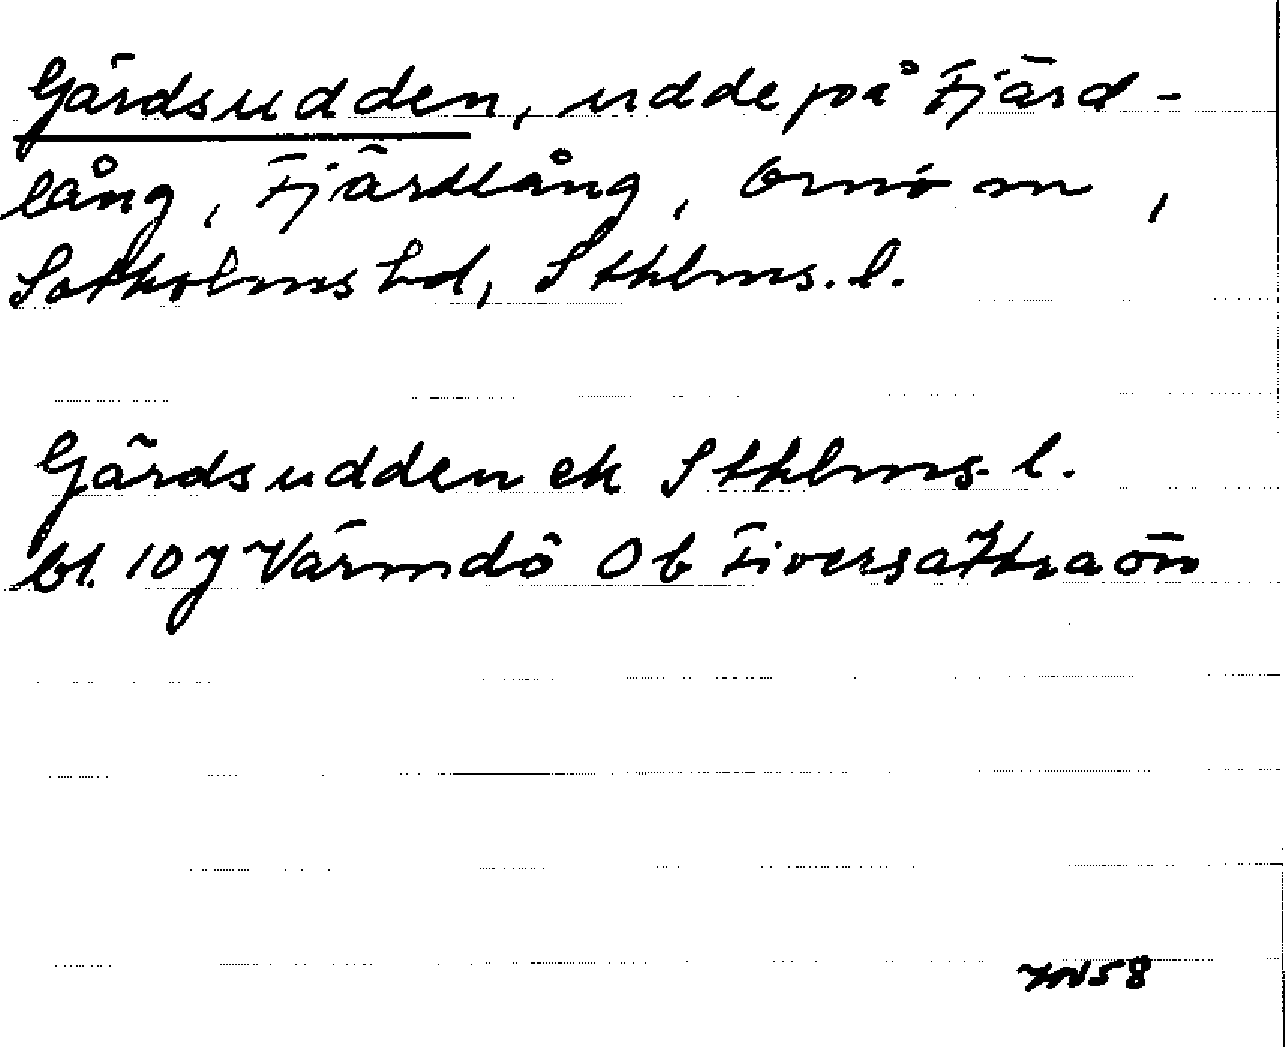 Gärdsudden, udde på Fjärd-
lång, Fjärdlång, Ornö sn,
Sotholms hd, Sthlms. l.
Gärdsudden ek Sthlms. l.
bl. 10 J Värmdö 0 b Fiversättraön